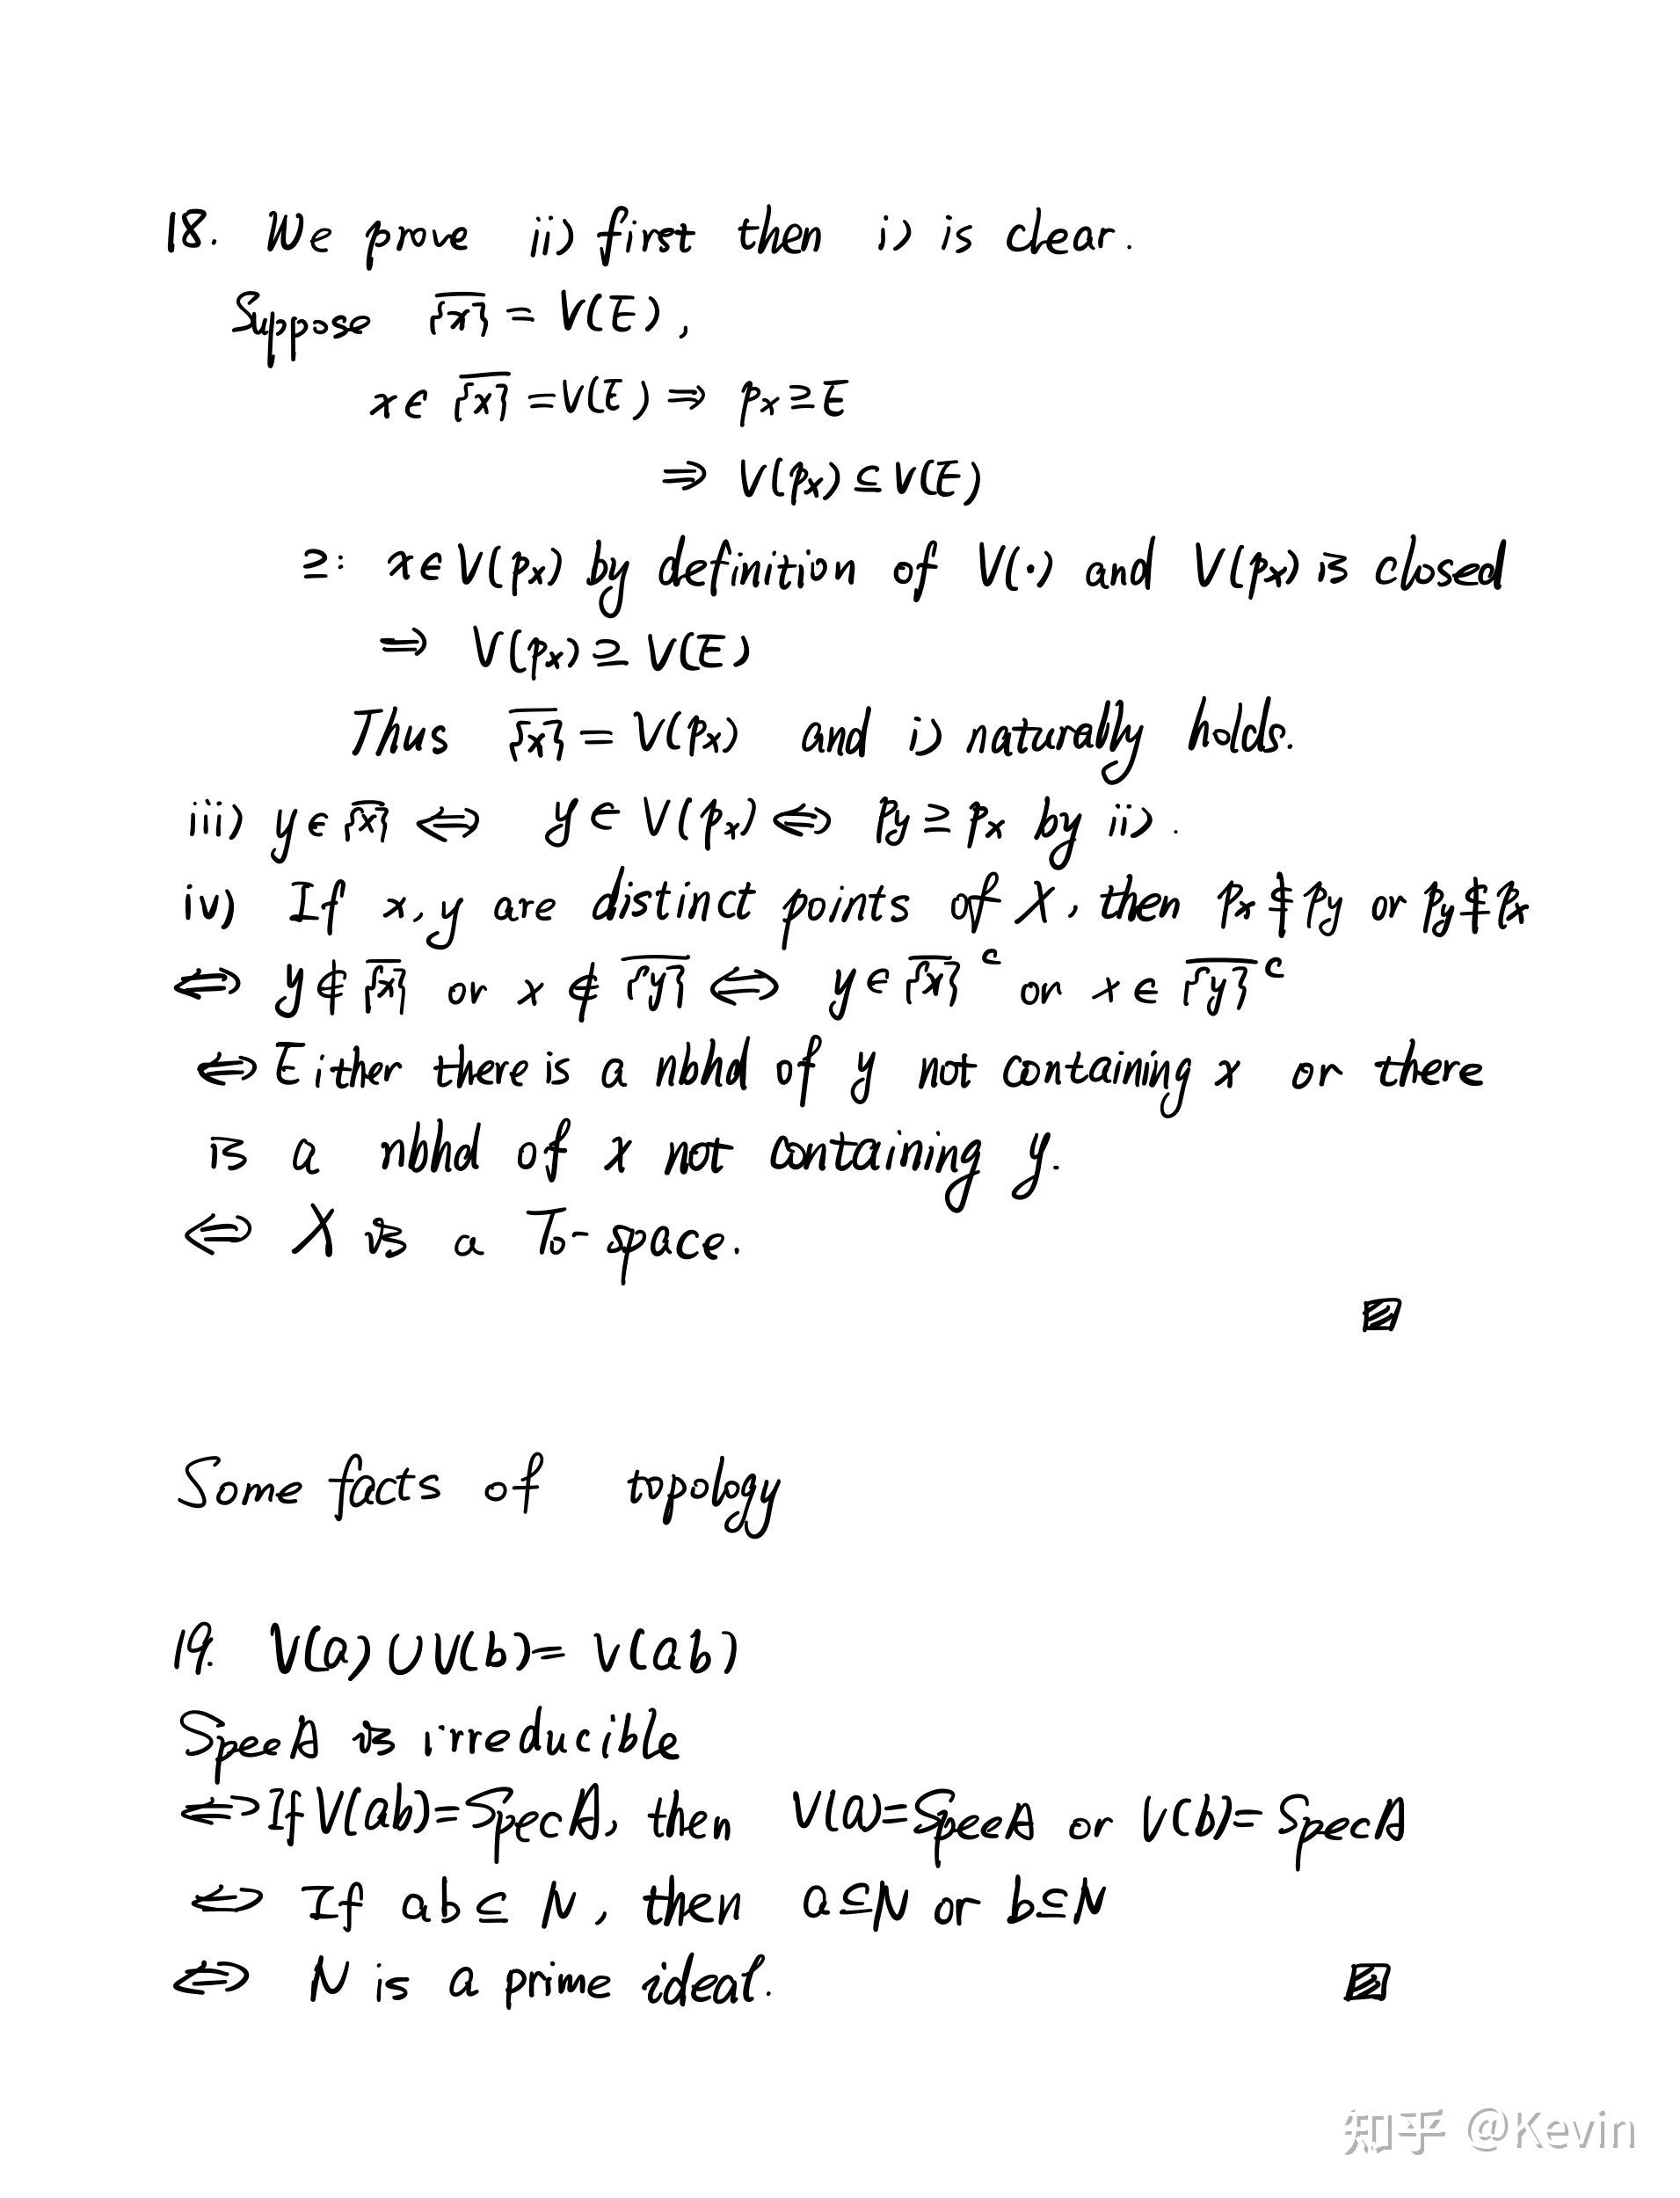 18. We prove ii) first then i) is clear.
Suppose \overline{{x}} = V(E),
x ∈ \overline{{x}} = V(E) ⇒ p_x ⊇ E
⇒ V(p_x) ⊆ V(E)
⊇: x ∈ V(p_x) by definition of V(·) and V(p_x) is closed
⇒ V(p_x) ⊇ V(E)
Thus \overline{{x}} = V(p_x) and i) naturally holds.
iii) y ∈ \overline{{x}} ⇔ y ∈ V(p_x) ⇔ p_y ⊇ p_x by ii).
iv) If x, y are distinct points of X, then p_x ⊈ p_y or p_y ⊈ p_x
⇔ y ∉ \overline{{x}} or x ∉ \overline{{y}} ⇔ y ∈ \overline{{x}}^c or x ∈ \overline{{y}}^c
⇔ Either there is a nbhd of y not containing x or there
is a nbhd of x not containing y.
⇔ X is a T₀-space.
Some facts of topology
19. V(a) ∪ V(b) = V(ab)
Spec A is irreducible
⇔ If V(ab) = Spec A, then V(a) = Spec A or V(b) = Spec A
⇔ If ab ⊆ N, then a ⊆ N or b ⊆ N
⇔ N is a prime ideal.
知乎 @Kevin